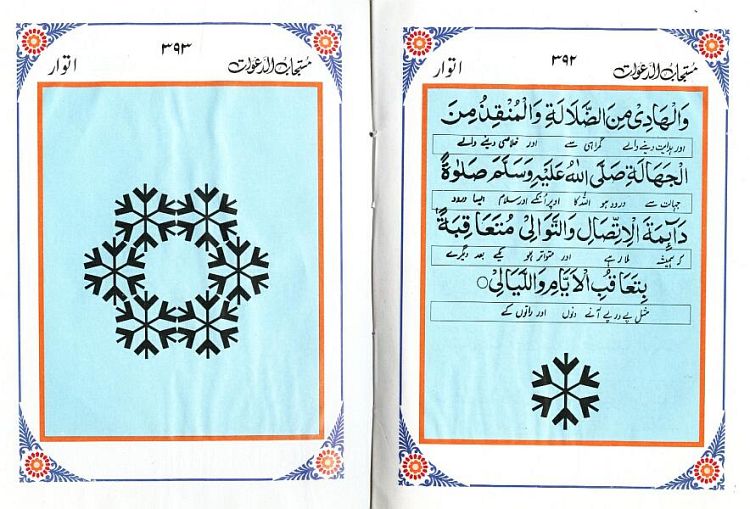 مستجاب الدعوات
۳۹۲
اتوار
وَالْهَادِیْ مِنَ الضَّلَالَةِ وَالْمُنْقِذُ مِنَ
اور ہدایت دینے والے گمراہی سے اور خلاصی دینے والے
الْجَهَالَةِ صَلَّی اللهُ عَلَیْهِ وَسَلَّمَ صَلٰوةً
جہالت سے درود ہو اللہ کا اوپر اُنکے اور سلام ایسا درود
دَآئِمَةَ الْاِتِّصَالِ وَالتَّوَالِیْ مُتَعَاقِبَةً
کہ ہمیشہ ملا رہے اور متواتر ہو یکے بعد دیگرے
بِتَعَاقُبِ الْاَیَّامِ وَاللَّیَالِیْ
مثل پے در پے آنے دنوں اور راتوں کے
مستجاب الدعوات
۳۹۳
اتوار